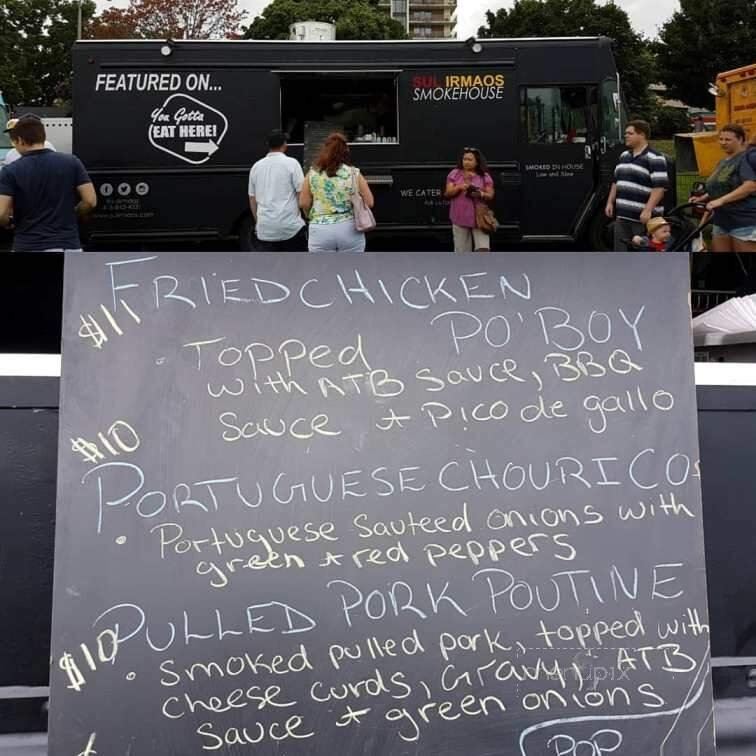 FEATURED ON...
You Gotta
EAT HERE!
SUL IRMAOS
SMOKEHOUSE
SMOKED IN HOUSE
Low and Slow
WE CATER
FRIED CHICKEN
$11
PO'BOY
• Topped
with ATB Sauce, BBQ
Sauce + Pico de gallo
$10
PORTUGUESE CHOURICO
• Portuguese Sauteed onions with
green + red peppers
PULLED PORK POUTINE
$10
• Smoked pulled pork, topped with
cheese curds, Gravy, ATB
Sauce + green onions
menupix
POP